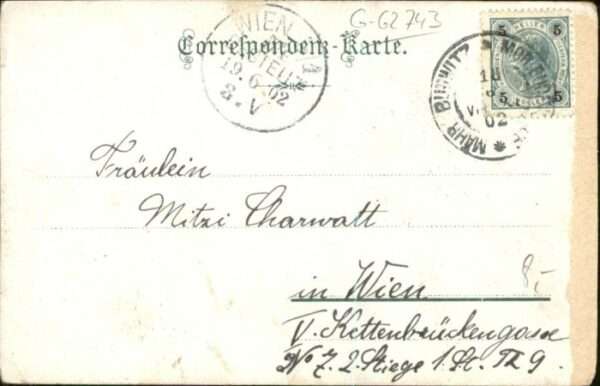 G-G2743
Correspondenz-Karte.
WIEN
BESTELLT
19.6.02
8.V
5 HELLER 5
5 5
MÄHR. BUDWITZ
18
02
Fräulein
Mitzi Charwatt
in Wien
8,-
V. Kettenbrückengasse
No 7. 2. Stiege 1. St. Th 9.